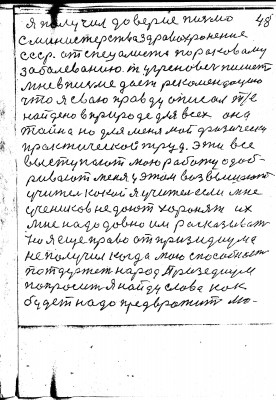 48
я получил доверие письмо
с министерства здравохронение
ссср. от специалиста по раковому
заболеванию. т. угренович пишет
мне в письме дает рекомендацию
что я сваю правду описал т/е
найдено в природе для всех она
тайна но для меня мой физически
практической труд. Эти все
выступают мою работу одоб-
ривают меня у этом возвышают
учител какой я учител если мне
учеников не дают хоронят их
мне надо довно им расказыват
но я еще право от призидиума
не получил когда мою способност
потдержет народ Призедиум
попросит я найду слова как
будет надо предвратит мо-